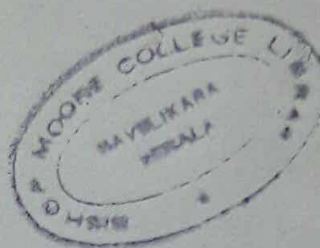 BISHOP MOORE COLLEGE LIBRARY
MAVELIKARA
KERALA